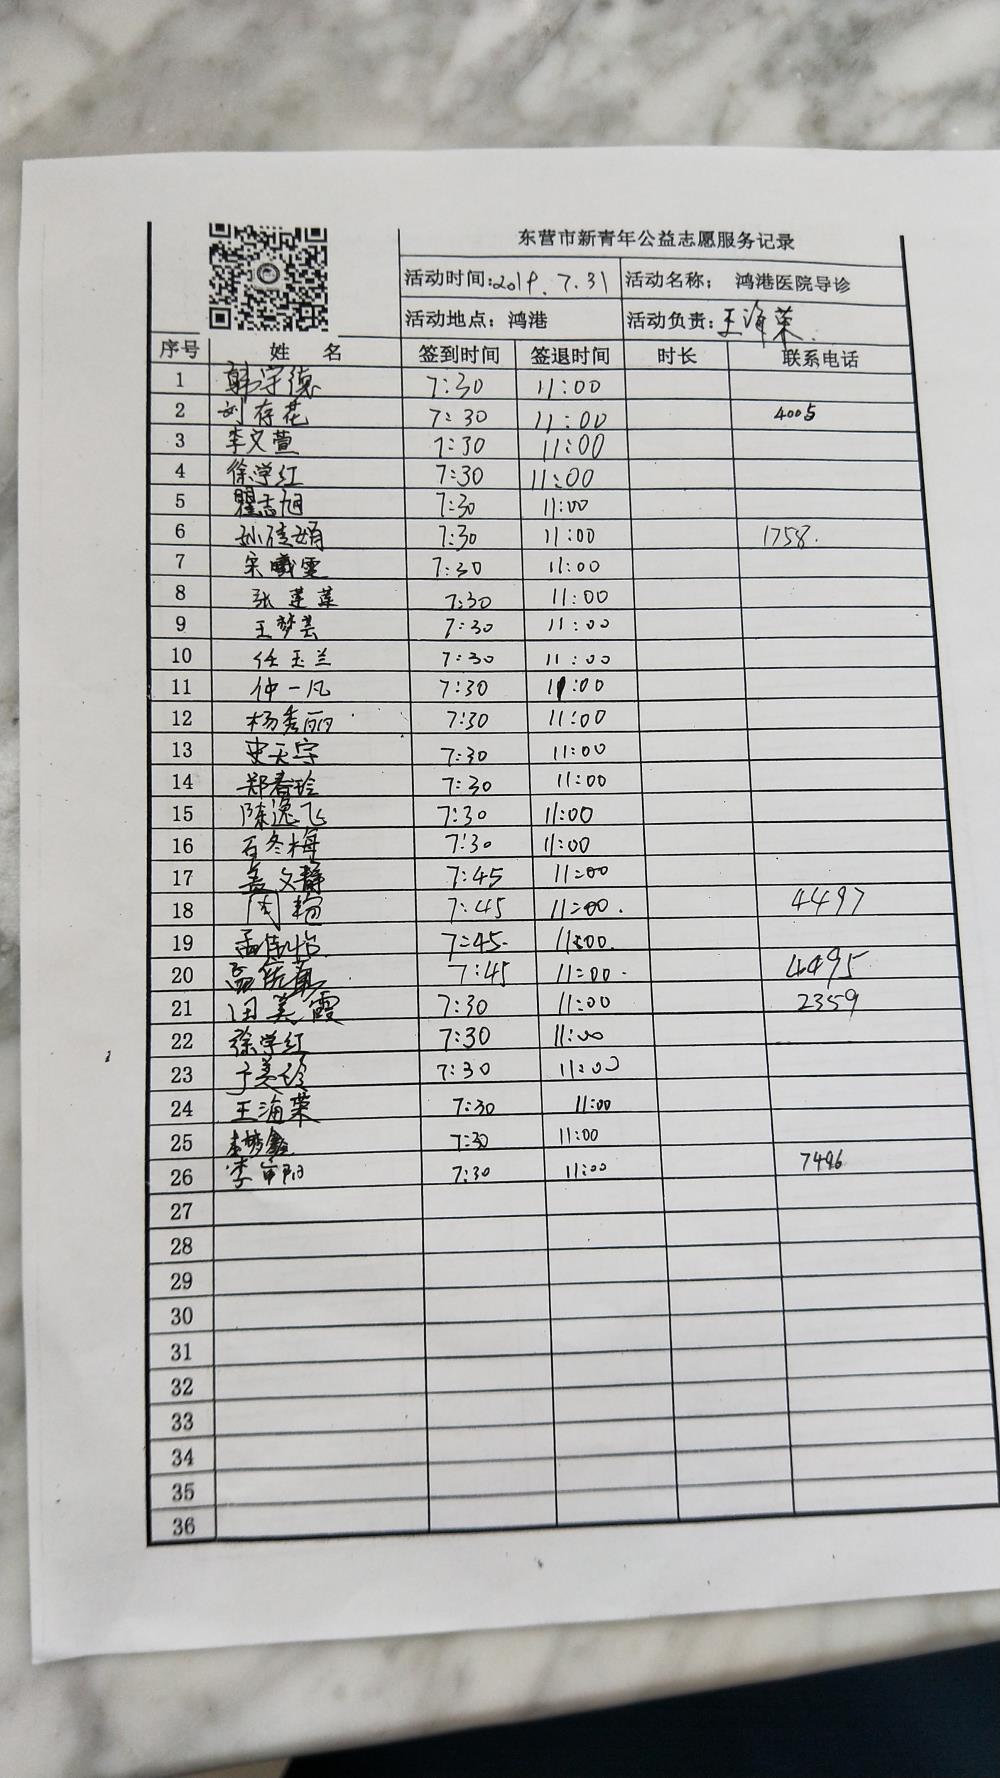 东营市新青年公益志愿服务记录
活动时间:2019.7.31 活动名称: 鸿港医院导诊
活动地点: 鸿港 活动负责: 王海荣
序号 姓 名 签到时间 签退时间 时长 联系电话
1 韩宇德 7:30 11:00
2 刘存花 7:30 11:00 4005
3 李文萱 7:30 11:00
4 徐学红 7:30 11:00
5 瞿志旭 7:30 11:00
6 孙倩娟 7:30 11:00 1758.
7 宋曦雯 7:30 11:00
8 张莲莲 7:30 11:00
9 王梦芸 7:30 11:00
10 任玉兰 7:30 11:00
11 仲一凡 7:30 11:00
12 杨秀丽 7:30 11:00
13 史天宇 7:30 11:00
14 郑春玲 7:30 11:00
15 陈逸飞 7:30 11:00
16 石冬梅 7:30 11:00
17 孟文静 7:45 11:00
18 周 7:45 11:00. 4497
19 孟佳怡 7:45. 11:00.
20 7:45 11:00. 4495
21 田美霞 7:30 11:00 2359
22 徐学红 7:30 11:00
23 于美珍 7:30 11:00
24 王海荣 7:30 11:00
25 李梦鑫 7:30 11:00
26 李 阳 7:30 11:00 7496
27
28
29
30
31
32
33
34
35
36